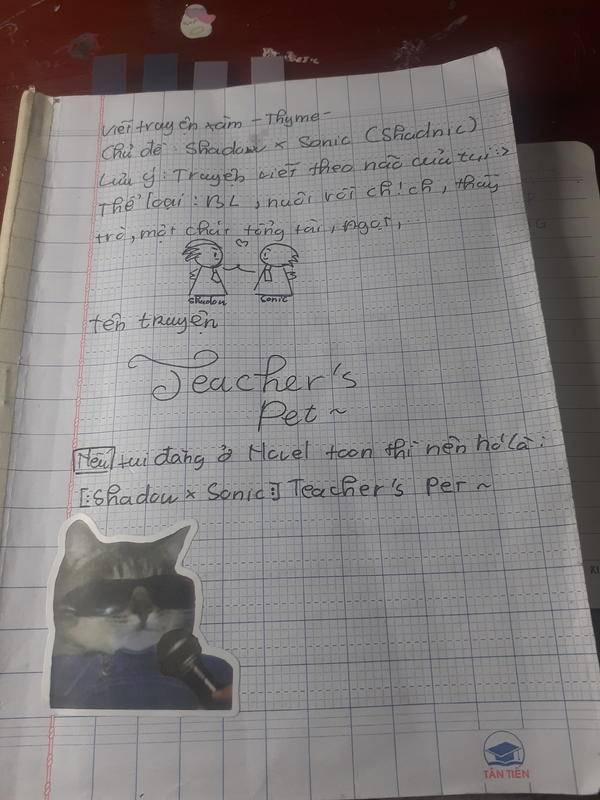 viết truyện xàm - Thyme -
Chủ đề : Shadow x Sonic (Shadnic)
Lưu ý : Truyện viết theo não của tui :>
Thể loại : BL , nuôi rồi ch!ch , thầy
trò , một chút tổng tài , ngọt , ...
Shadow Sonic
tên truyện
Teacher's
Pet ~
Nếu tui đăng ở Novel toon thì nên nó là :
[: Shadow x Sonic :] Teacher's Pet ~
TÂN TIẾN